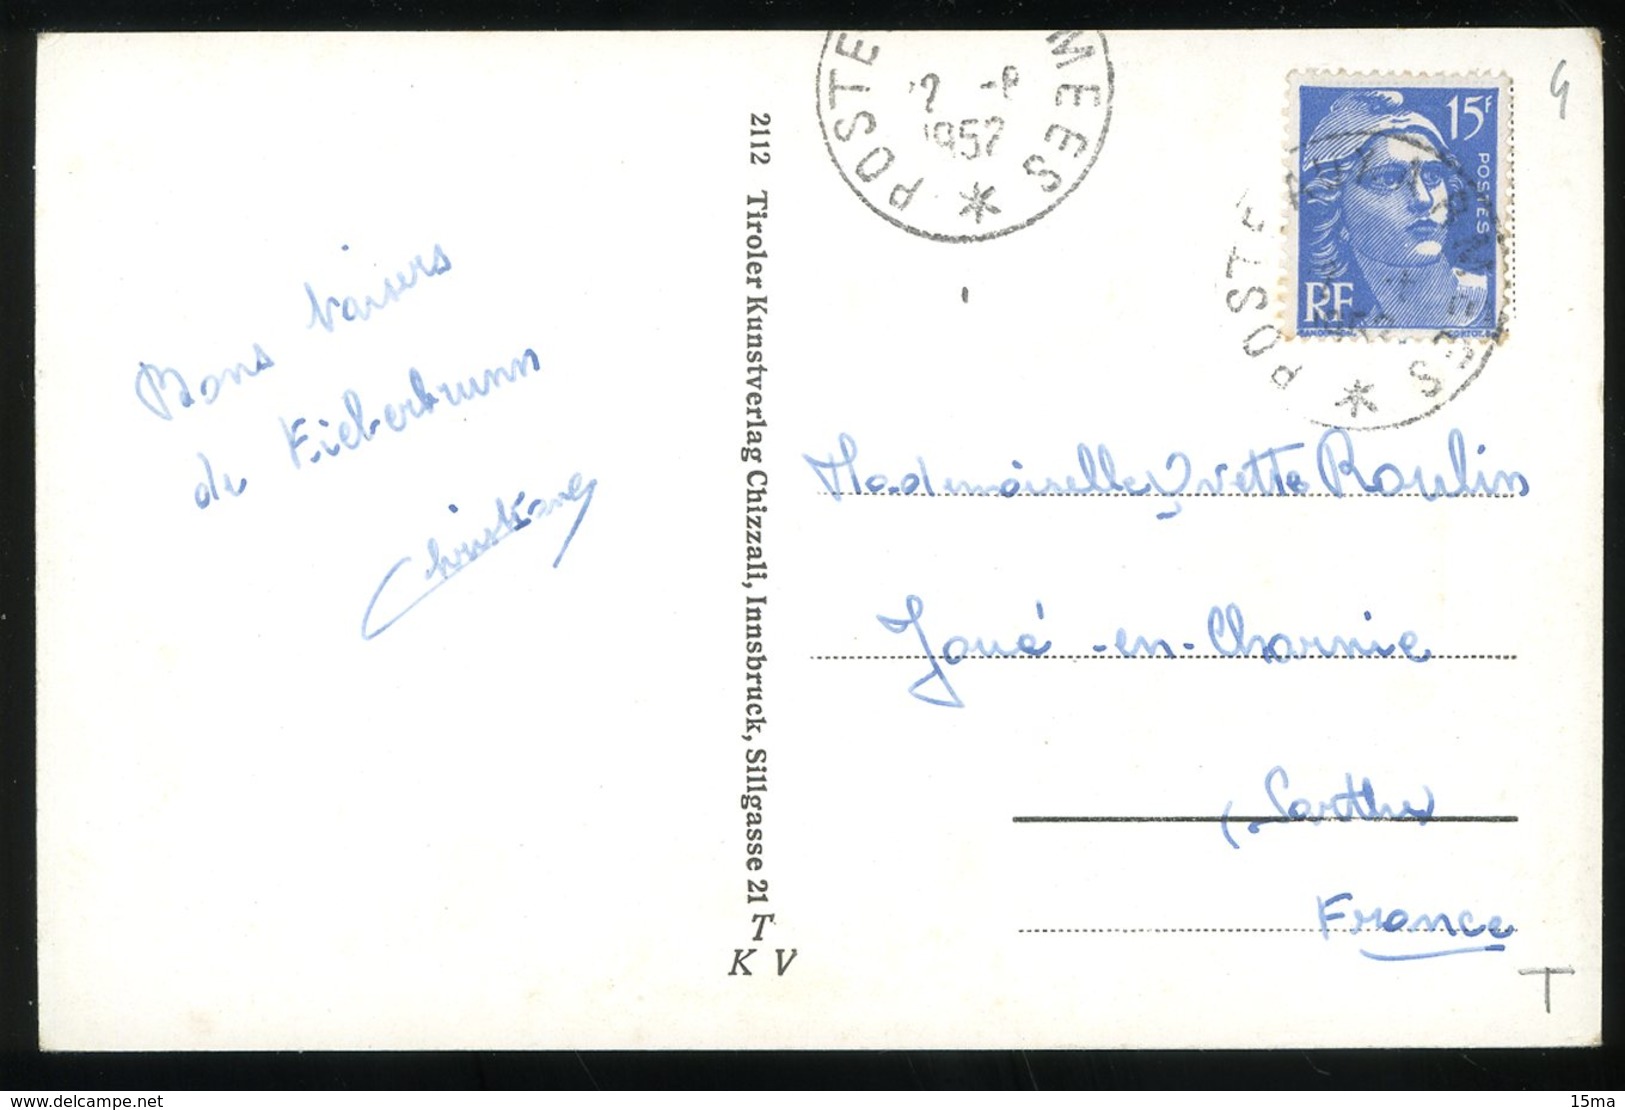 Bons baisers
de Fieberbrunn
Christiane
2112 Tiroler Kunstverlag Chizzali, Innsbruck, Sillgasse 21
T
K V
POSTE MEES
2 -8
1952
*
15F
POSTES
RF
POSTE AUX ARMEES
*
4
Mademoiselle Yvette Roulin
Joué-en-Charnie
(Sarthe)
France
T
www.delcampe.net
15ma